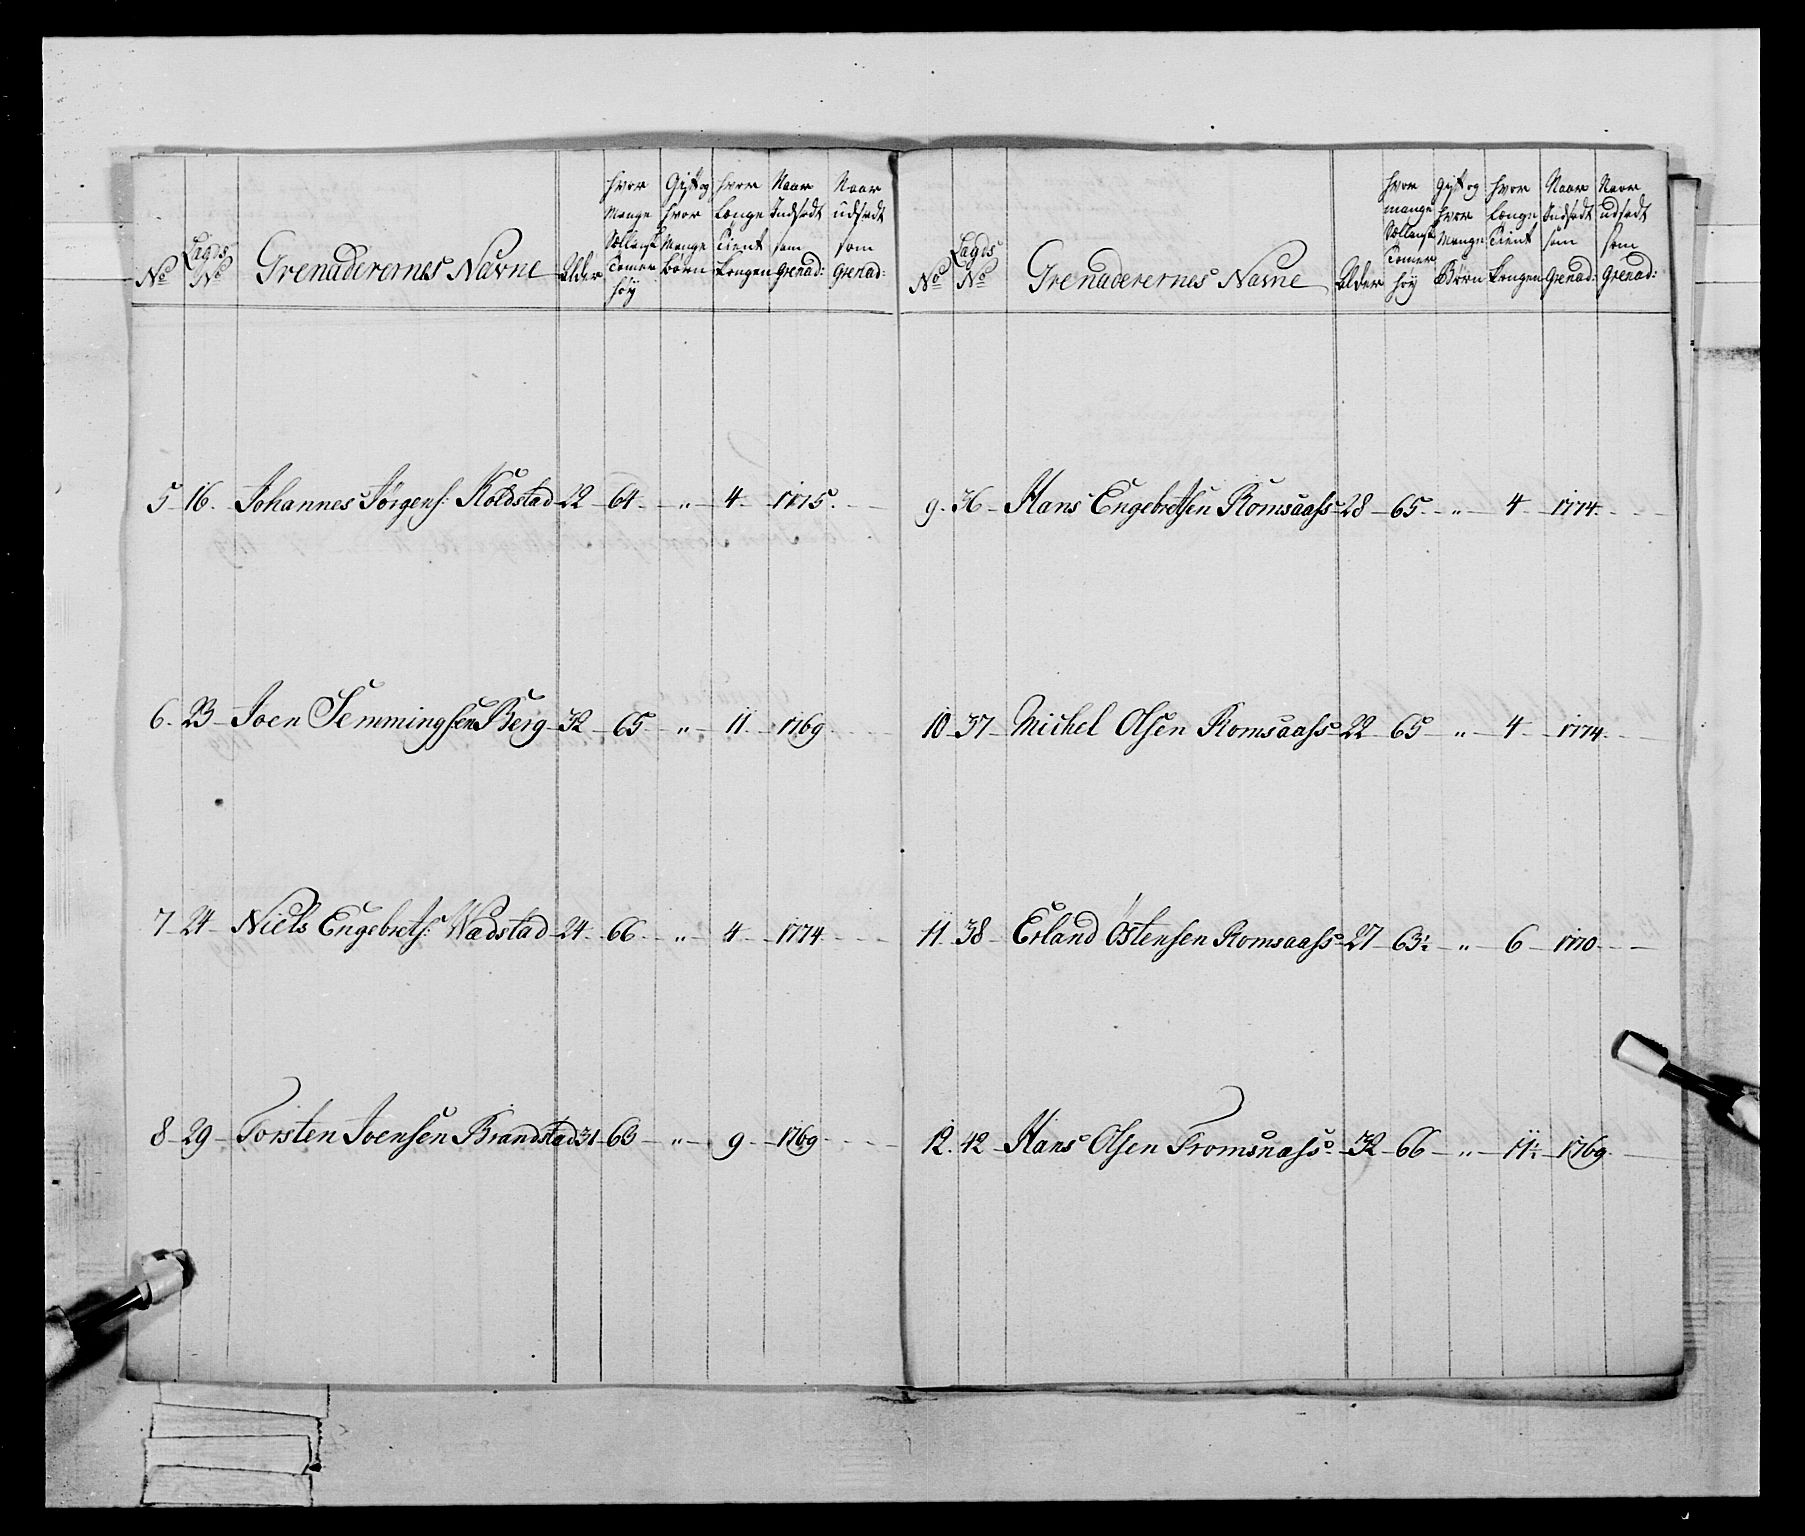 No
Lagds No
Grenaderernes Navne
Alder
hvor Mange Sællandsk Tomer høy
Gift og hvor Mange Børn
hvor Længe Tient Kongen
Naar Indsadt som Grenad:
Naar udsadt som Grenad:
5 16. Johannes Jørgens: Koldstad 22 64. „ 4. 1775.
6. 23 Joen Semmingsen Berg 32 65 „ 11. 1769
7 24 Niels Engebrets: Wadstad 24 66 „ 4 1774
8 29 Torsten Joensen Brandstad 31 63 „ 9 1769
No
Lagds No
Grenaderernes Navne
Alder
hvor mange Sællandsk Tomer høy
Gift og hvor Mange Børn
hvor Længe Tient Kongen
Naar Indsadt som Grenad:
Naar udsadt som Grenad:
9. 36 Hans Engebretsen Romsaass 28 65 „ 4 1774.
10 37 Michel Olsen Romsaass 22 65 „ 4 1774.
11. 38 Erland Östensen Romsaass 27 63½ „ 6 1770.
12. 42 Hans Olsen Fromsnæss 32 66 „ 11½ 1769.